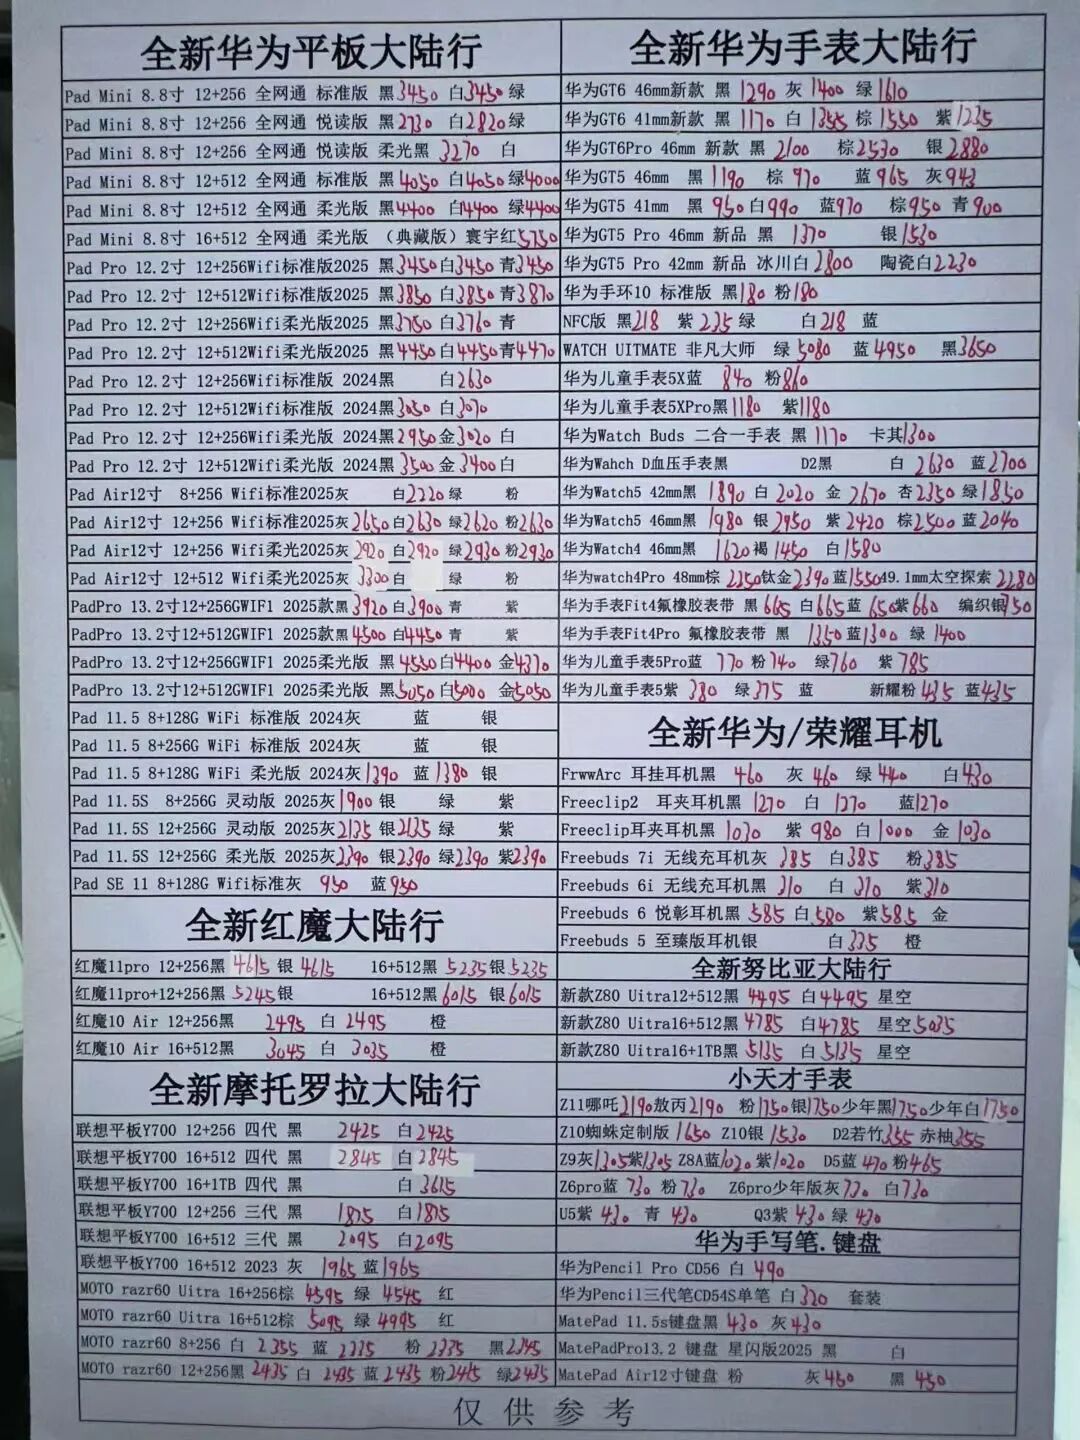 全新华为平板大陆行
Pad Mini 8.8寸 12+256 全网通 标准版 黑3450 白3450 绿
Pad Mini 8.8寸 12+256 全网通 悦读版 黑2730 白2820 绿
Pad Mini 8.8寸 12+256 全网通 悦读版 柔光黑 3270 白
Pad Mini 8.8寸 12+512 全网通 标准版 黑4050 白4050 绿4000
Pad Mini 8.8寸 12+512 全网通 柔光版 黑4400 白4400 绿4400
Pad Mini 8.8寸 16+512 全网通 柔光版 (典藏版) 寰宇红5750
Pad Pro 12.2寸 12+256Wifi标准版2025 黑3450 白3450 青3450
Pad Pro 12.2寸 12+512Wifi标准版2025 黑3850 白3850 青3870
Pad Pro 12.2寸 12+256Wifi柔光版2025 黑3750 白3760 青
Pad Pro 12.2寸 12+512Wifi柔光版2025 黑4450 白4450 青4470
Pad Pro 12.2寸 12+256Wifi标准版 2024黑 白2630
Pad Pro 12.2寸 12+512Wifi标准版 2024黑3050 白3070
Pad Pro 12.2寸 12+256Wifi柔光版 2024黑2950 金3020 白
Pad Pro 12.2寸 12+512Wifi柔光版 2024黑3500 金3400 白
Pad Air12寸 8+256 Wifi标准2025灰 白2220 绿 粉
Pad Air12寸 12+256 Wifi标准2025灰2650 白2630 绿2620 粉2630
Pad Air12寸 12+256 Wifi柔光2025灰2920 白2920 绿2930 粉2930
Pad Air12寸 12+512 Wifi柔光2025灰3300 白 绿 粉
PadPro 13.2寸12+256GWIF1 2025款黑3920 白3900 青 紫
PadPro 13.2寸12+512GWIF1 2025款黑4500 白4450 青 紫
PadPro 13.2寸12+256GWIF1 2025柔光版 黑4550 白4400 金4370
PadPro 13.2寸12+512GWIF1 2025柔光版 黑5050 白5000 金5050
Pad 11.5 8+128G WiFi 标准版 2024灰 蓝 银
Pad 11.5 8+256G WiFi 标准版 2024灰 蓝 银
Pad 11.5 8+128G WiFi 柔光版 2024灰1390 蓝1380 银
Pad 11.5S 8+256G 灵动版 2025灰1900 银 绿 紫
Pad 11.5S 12+256G 灵动版 2025灰2135 银2135 绿 紫
Pad 11.5S 12+256G 柔光版 2025灰2390 银2390 绿2390 紫2390
Pad SE 11 8+128G Wifi标准灰 950 蓝950
全新红魔大陆行
红魔11pro 12+256黑4615 银4615 16+512黑5235 银5235
红魔11pro+12+256黑5245 银 16+512黑6015 银6015
红魔10 Air 12+256黑 2495 白 2495 橙
红魔10 Air 16+512黑 3045 白 3035 橙
全新摩托罗拉大陆行
联想平板Y700 12+256 四代 黑 2425 白2425
联想平板Y700 16+512 四代 黑 2845 白2845
联想平板Y700 16+1TB 四代 黑 白3615
联想平板Y700 12+256 三代 黑 1875 白1875
联想平板Y700 16+512 三代 黑 2095 白2095
联想平板Y700 16+512 2023 灰 1965 蓝1965
MOTO razr60 Uitra 16+256棕 4595 绿 4545 红
MOTO razr60 Uitra 16+512棕 5095 绿 4995 红
MOTO razr60 8+256 白 2355 蓝 2335 粉 2335 黑2345
MOTO razr60 12+256黑 2435 白 2435 蓝 2435 粉2415 绿2435
全新华为手表大陆行
华为GT6 46mm新款 黑 1290 灰 1400 绿 1610
华为GT6 41mm新款 黑 1170 白 1355 棕 1550 紫1235
华为GT6Pro 46mm 新款 黑 2100 棕2530 银2880
华为GT5 46mm 黑 1190 棕 970 蓝 965 灰 943
华为GT5 41mm 黑 950 白990 蓝970 棕950 青900
华为GT5 Pro 46mm 新品 黑 1370 银1530
华为GT5 Pro 42mm 新品 冰川白2800 陶瓷白2230
华为手环10 标准版 黑180 粉180
NFC版 黑218 紫 235 绿 白218 蓝
WATCH UITMATE 非凡大师 绿 5080 蓝 4950 黑3650
华为儿童手表5X蓝 840 粉860
华为儿童手表5XPro黑 1180 紫1180
华为Watch Buds 二合一手表 黑 1170 卡其1300
华为Wahch D血压手表黑 D2黑 白 2630 蓝2700
华为Watch5 42mm黑 1890 白 2020 金 2670 杏2350 绿1850
华为Watch5 46mm黑 1980 银 2950 紫 2420 棕2500 蓝2040
华为Watch4 46mm黑 1620 褐1450 白1580
华为watch4Pro 48mm棕 2250 钛金2390 蓝1550 49.1mm太空探索 2280
华为手表Fit4氟橡胶表带 黑665 白665 蓝 650 紫660 编织银750
华为手表Fit4Pro 氟橡胶表带 黑 1350 蓝1300 绿 1400
华为儿童手表5Pro蓝 770 粉740 绿760 紫785
华为儿童手表5紫 380 绿375 蓝 新耀粉 435 蓝435
全新华为/荣耀耳机
FrwwArc 耳挂耳机黑 460 灰 460 绿 440 白430
Freeclip2 耳夹耳机黑 1270 白 1270 蓝1270
Freeclip耳夹耳机黑 1030 紫 980 白1000 金1030
Freebuds 7i 无线充耳机灰 385 白385 粉385
Freebuds 6i 无线充耳机黑 310 白 310 紫310
Freebuds 6 悦彰耳机黑 585 白580 紫585 金
Freebuds 5 至臻版耳机银 白335 橙
全新努比亚大陆行
新款Z80 Uitra12+512黑 4495 白4495 星空
新款Z80 Uitra16+512黑4785 白4785 星空5035
新款Z80 Uitra16+1TB黑 5135 白5135 星空
小天才手表
Z11哪吒2190 敖丙2190 粉1750 银1750 少年黑1750 少年白1750
Z10蜘蛛定制版 1650 Z10银 1530 D2若竹355 赤柚355
Z9灰1305 紫1305 Z8A蓝1020 紫1020 D5蓝 470 粉465
Z6pro蓝 730 粉730 Z6pro少年版灰730 白730
U5紫 430 青 430 Q3紫430 绿 430
华为手写笔.键盘
华为Pencil Pro CD56 白 490
华为Pencil三代笔CD54S单笔 白320 套装
MatePad 11.5s键盘黑 430 灰430
MatePadPro13.2 键盘 星闪版2025 黑 白
MatePad Air12寸键盘 粉 灰460 黑 450
仅供参考